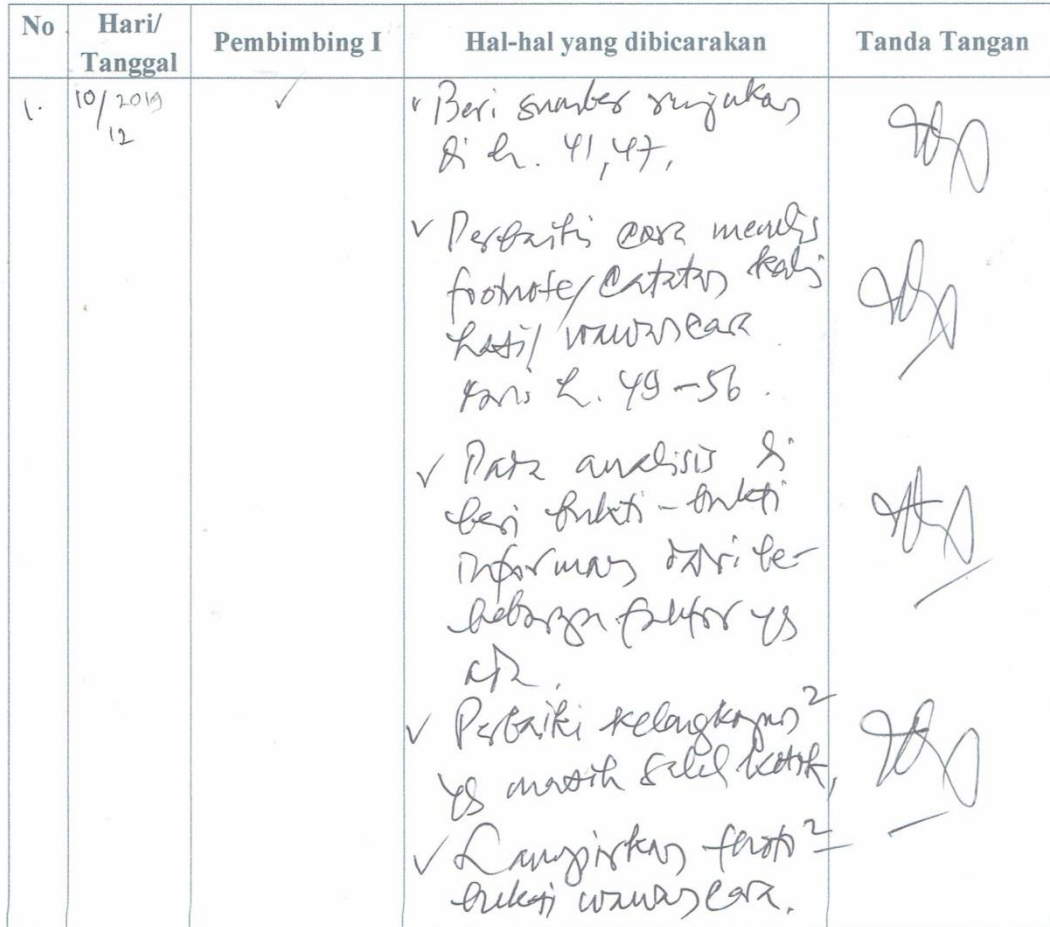 No Hari/ Tanggal Pembimbing I Hal-hal yang dibicarakan Tanda Tangan
1. 10/12 2019 ✓ ✓ Beri sumber rujukan
di h. 41, 47,
✓ Perbaiki cara menulis
footnote/catatan kaki
hasil wawancara
dari h. 49-56.
✓ Data analisis di
beri bukti-bukti
informan dari be-
beberapa faktor yg
ada.
✓ Perbaiki
yg masih salah ketik,
✓ Lampirkan foto²
bukti wawancara.